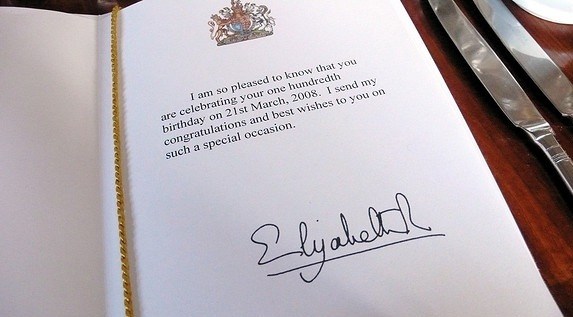 I am so pleased to know that you
are celebrating your one hundredth
birthday on 21st March, 2008. I send my
congratulations and best wishes to you on
such a special occasion.
Elizabeth R